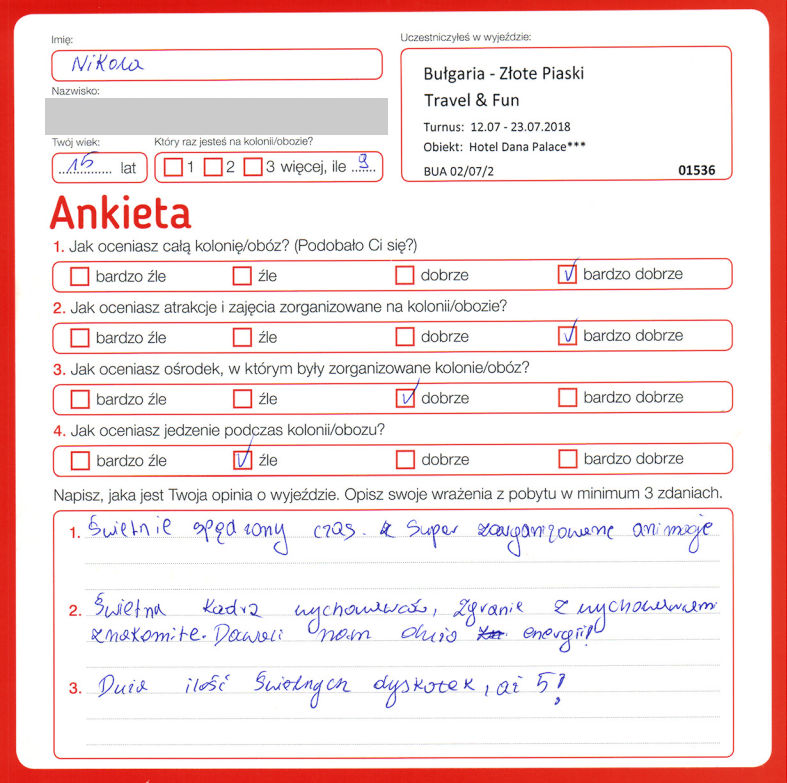 Imię:
Nikola
Nazwisko:
Twój wiek:
15 lat
Który raz jesteś na kolonii/obozie?
1 2 3 więcej, ile 9
Uczestniczyłeś w wyjeździe:
Bułgaria - Złote Piaski
Travel & Fun
Turnus: 12.07 - 23.07.2018
Obiekt: Hotel Dana Palace***
BUA 02/07/2 01536
Ankieta
1. Jak oceniasz całą kolonię/obóz? (Podobało Ci się?)
bardzo źle źle dobrze bardzo dobrze
2. Jak oceniasz atrakcje i zajęcia zorganizowane na kolonii/obozie?
bardzo źle źle dobrze bardzo dobrze
3. Jak oceniasz ośrodek, w którym były zorganizowane kolonie/obóz?
bardzo źle źle dobrze bardzo dobrze
4. Jak oceniasz jedzenie podczas kolonii/obozu?
bardzo źle źle dobrze bardzo dobrze
Napisz, jaka jest Twoja opinia o wyjeździe. Opisz swoje wrażenia z pobytu w minimum 3 zdaniach.
1. Świetnie spędzony czas. Super zaorganizowane animacje
2. Świetna kadra wychowawców, zgranie z wychowawcami
znakomite. Dawali nam dużo energii!
3. Duża ilość świetnych dyskotek, aż 5!